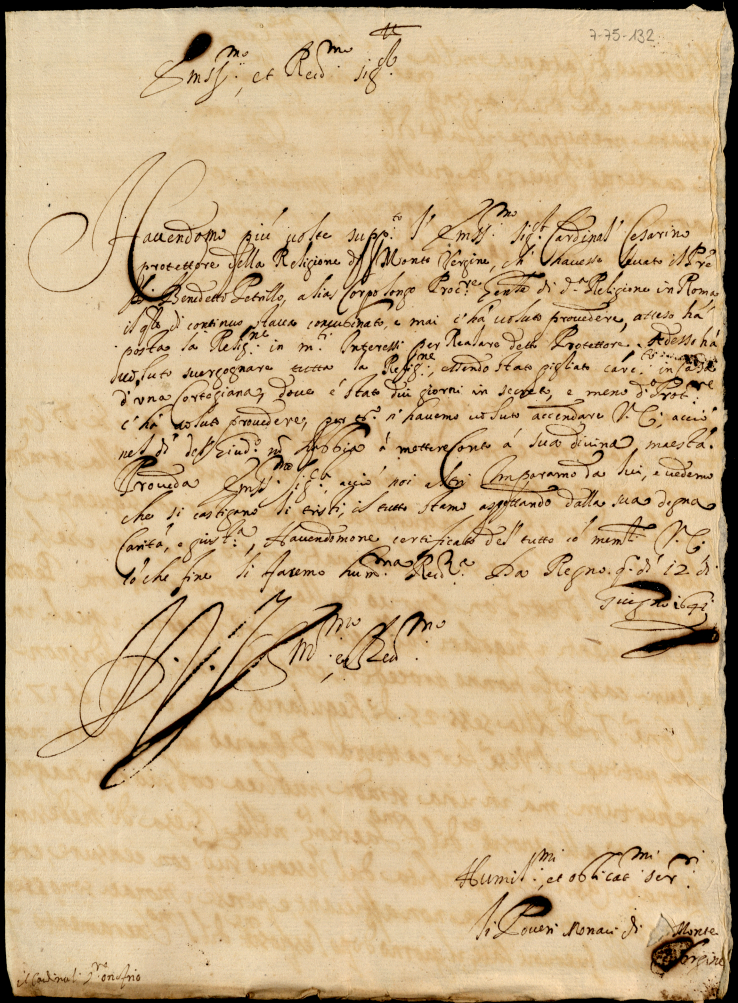 7-75-132
Em.ss.mo et Re.d.mo Sig.r
Havendomo più volte supp.to l'Em.ss.mo Sig.r Cardinal Cesarino
protettore della Religione di Monte Vergine, che havesse levato il Pre
D. Benedetto Petrillo, alias Corpo longo Proc.re Gen.le di d.a Religione in Roma
il q.le di continuo stava concubinato, e mai c'hà voluto provedere, atteso hà
posta la Relig.ne in m.ti Interessi per Realare detto Protettore. Adesso hà
voluto svergognare tutta la Relig.ne essendo stato pigliato car.to in Casa
d'una Cortegiana, dove è stato più giorni in secreto, e meno d.o Prot.re
c'hà voluto provedere, per tò n'havemo voluto accendare V. E. acciò
nel dì del Giud.o n̄ habbia à mettere Conto à sua divina maestà.
Proveda Em.ss.mo Sig.re acciò noi altri Imparamo da lui, e vedemo
che si castigano li tristi, il tutto stamo aspettando dalla sua degna
Carità, e giust.a, Havendomone certificato del tutto cò mem.li V. E.
Cò che fine li facemo hum.ma Rev.za Da Regno q. dì 12 di
Giugno 1641
D. V. E.
Em.mo et Red.mo
Humil.mi et obligat.mi ser.ri
li Poveri Monaci di Monte
Vergine
il Cardinal S.to Onofrio